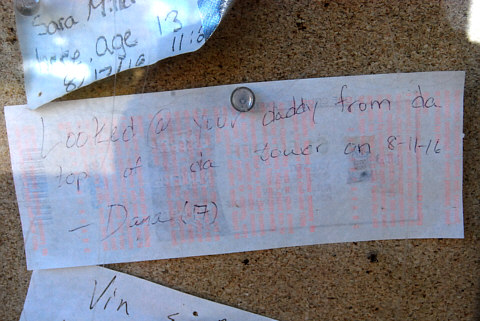 Sara
age 13
8/17/16 11:
Looked @ your daddy from da
top of da tower on 8-11-16
- Dana (17)
Vin